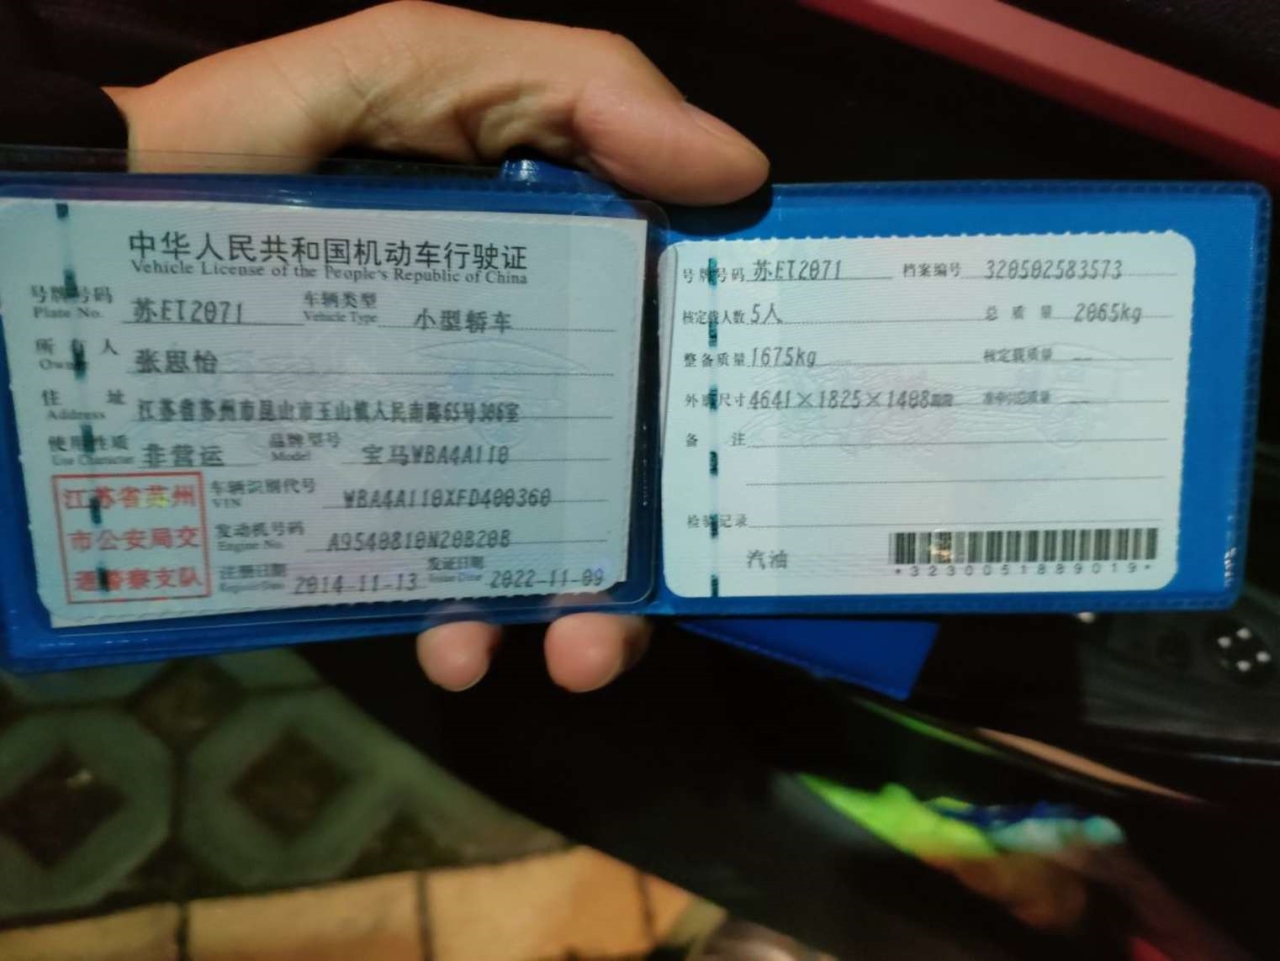 中华人民共和国机动车行驶证
Vehicle License of the People's Republic of China
号牌号码 苏ET2071 车辆类型 小型轿车
Plate No. Vehicle Type
所有人 张思怡
Owner
住址 江苏省苏州市昆山市玉山镇人民南路65号306室
Address
使用性质 非营运 品牌型号 宝马WBA4A110
Use Character Model
江苏省苏州
市公安局交
通警察支队
车辆识别代号 WBA4A110XFD400360
VIN
发动机号码 A9540810N20B20B
Engine No.
注册日期 2014-11-13 发证日期 2022-11-09
Register Date Issue Date
号牌号码 苏ET2071 档案编号 320502583573
核定载人数 5人 总质量 2065kg
整备质量 1675kg 核定载质量 --
外廓尺寸 4641×1825×1408mm 准牵引总质量 --
备注
检验记录
汽油
*3230051889019*